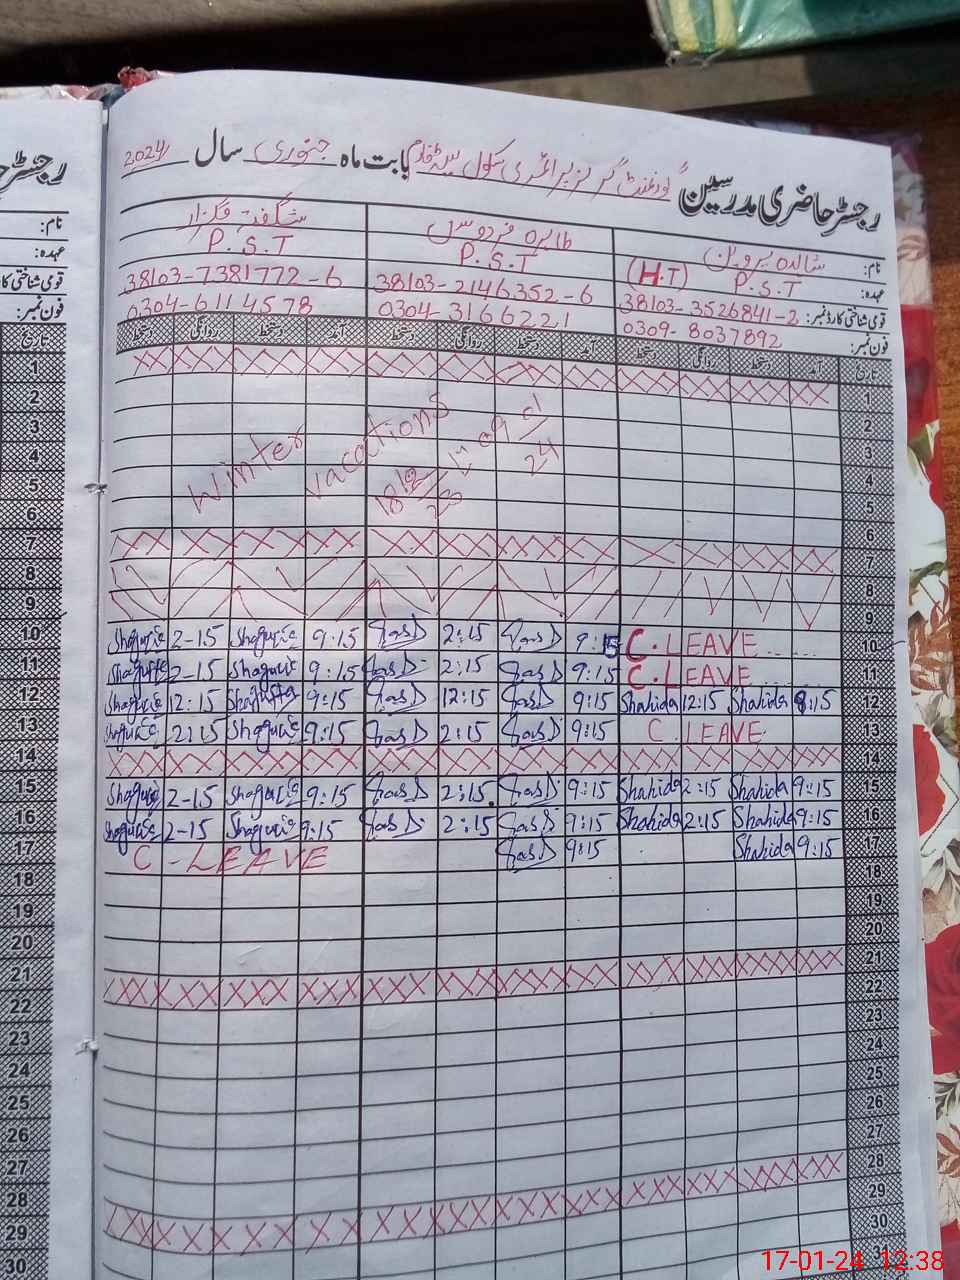 رجسٹر حاضری مدرسین گورنمنٹ گرلز پرائمری سکول بابت ماہ جنوری سال 2024
نام: شاہدہ پروین طاہرہ فردوس شگفتہ گلزار
عہدہ: P.S.T (H.T) P.S.T P.S.T
قومی شناختی کارڈ نمبر: 38103-3526841-2 38103-2146352-6 38103-7381772-6
فون نمبر: 0309-8037892 0304-3166221 0304-6114578
تاریخ آمد دستخط روانگی دستخط آمد دستخط روانگی دستخط آمد دستخط روانگی دستخط
1 XX XX XX XX XX XX XX XX XX XX XX XX 1
2 2
3 3
4 Winter vacations 18/12/23 to 09/01/24 4
5 5
6 6
7 7
8 8
9 9
10 Shagufta 2-15 Shagufta 9:15 2:15 9:15 C.LEAVE 10
11 Shagufta 2-15 Shagufta 9:15 2:15 9:15 C.LEAVE 11
12 Shagufta 12:15 Shagufta 9:15 12:15 9:15 Shahida 12:15 Shahida 9:15 12
13 Shagufta 2:15 Shagufta 9:15 2:15 9:15 C.LEAVE 13
14 14
15 Shagufta 2-15 Shagufta 9:15 2:15 9:15 Shahida 2:15 Shahida 9:15 15
16 Shagufta 2-15 Shagufta 9:15 2:15 9:15 Shahida 2:15 Shahida 9:15 16
17 C-LEAVE 9:15 Shahida 9:15 17
18 18
19 19
20 20
21 21
22 22
23 23
24 24
25 25
26 26
27 27
28 28
29 29
30 30
17-01-24 12:38